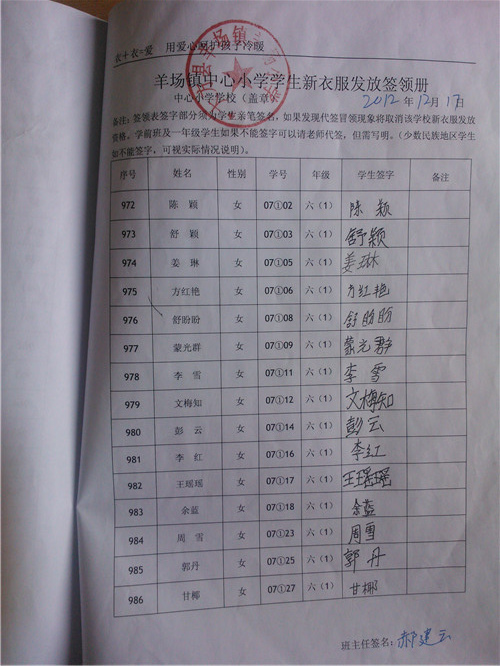 衣+衣=爱 用爱心呵护孩子冷暖
羊场镇中心小学学生新衣服发放签领册
中心小学学校（盖章） 2012年12月17日
备注：签领表签字部分须为学生亲笔签名，如果发现代签冒领现象将取消该学校新衣服发放
资格。学前班及一年级学生如果不能签字可以请老师代签，但需写明。（少数民族地区学生
如不能签字，可视实际情况说明）。
序号 姓名 性别 学号 年级 学生签字 备注
972 陈颖 女 07①02 六（1） 陈颖
973 舒颖 女 07①03 六（1） 舒颖
974 姜琳 女 07①05 六（1） 姜琳
975 方红艳 女 07①06 六（1） 方红艳
976 舒盼盼 女 07①08 六（1） 舒盼盼
977 蒙光群 女 07①09 六（1） 蒙光群
978 李雪 女 07①11 六（1） 李雪
979 文梅知 女 07①12 六（1） 文梅知
980 彭云 女 07①14 六（1） 彭云
981 李红 女 07①16 六（1） 李红
982 王瑶瑶 女 07①17 六（1） 王瑶瑶
983 余蓝 女 07①18 六（1） 余蓝
984 周雪 女 07①23 六（1） 周雪
985 郭丹 女 07①25 六（1） 郭丹
986 甘椰 女 07①27 六（1） 甘椰
班主任签名：郝建云